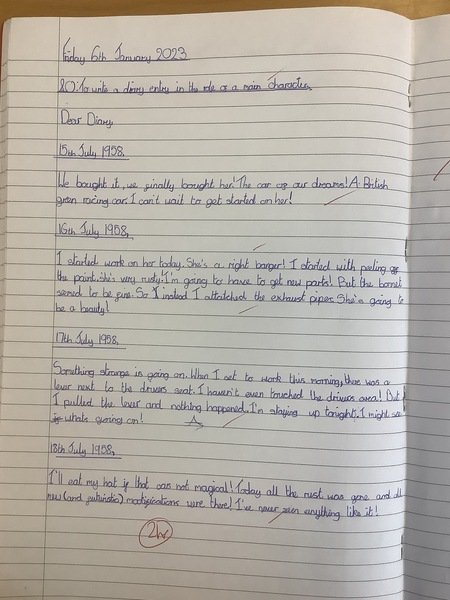 Friday 6th January 2023
LO: To write a diary entry in the role of a main character.
Dear Diary,
15th July 1958,
We bought it, we finally bought her! The car of our dreams! A British
green racing car. I can't wait to get started on her!
16th July 1958,
I started work on her today. She's a right banger! I started with peeling off
the paint. She's very rusty. I'm going to have to get new parts! But the bonnet
semed to be fine. So I instead I attatched the exhaust pipes. She's going to
be a beauty!
17th July 1958,
Something strange is going on. When I set to work this morning, there was a
lever next to the drivers seat. I haven't even touched the drivers area! But
I pulled the lever and nothing happened. I'm staying up tonight. I might see
whats going on!
18th July 1958,
I'll eat my hat if that was not magical! Today all the rust was gone and all
new (and futuristic) modifications were there! I've never seen anything like it!